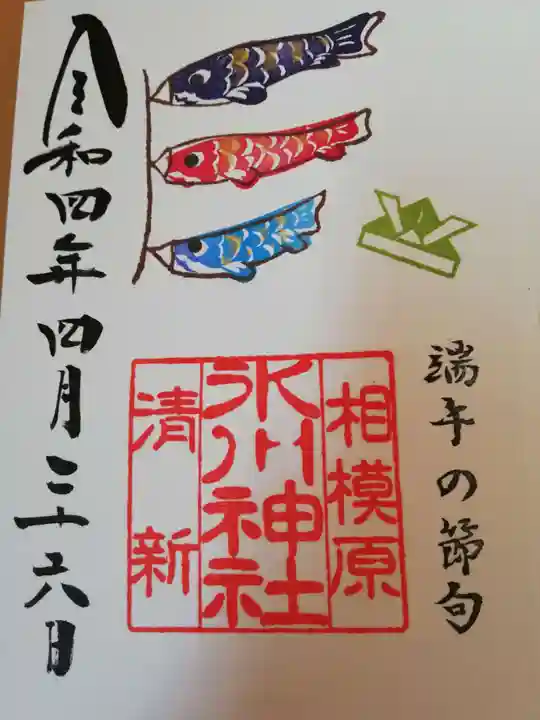 端午の節句
相模原
氷川神社
清新
令和四年四月二十六日